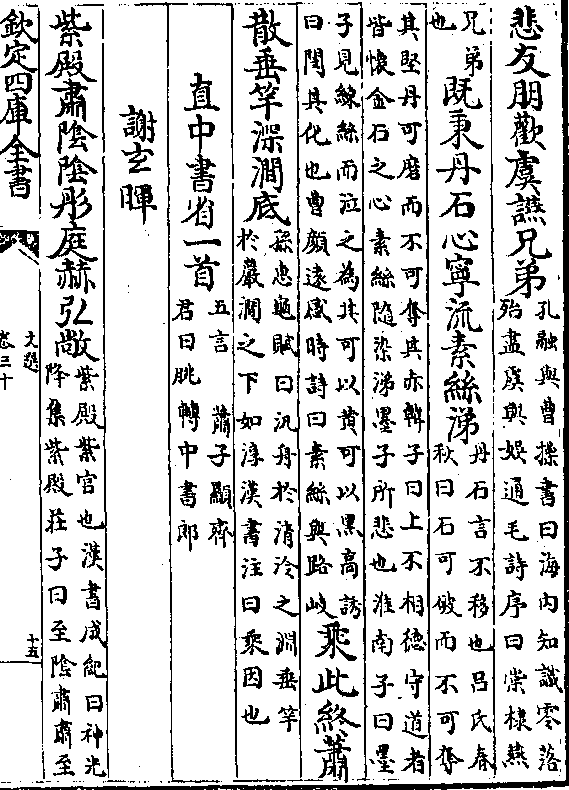 悲友朋歡虞讌兄弟孔融與曹操書曰海内知識零落殆盡虞與娛通毛詩序曰棠棣燕
兄弟也既秉丹石心寧流素絲涕丹石言不移也吕氏春秋曰石可破而不可奪
其堅丹可磨而不可奪其赤韓子曰上不相德守道者皆懷金石之心素絲隨染涕墨子所悲也淮南子曰墨
子見練絲而泣之為其可以黄可以黒高誘曰閔其化也曹顔遠感時詩曰素絲與路岐乘此終蕭
散垂竿深澗底孫惠龜賦曰汎舟於清泠之淵垂竿於巖澗之下如淳漢書注曰乘因也
直中書省一首五言 蕭子顯齊君曰朓轉中書郎
謝玄暉
紫殿肅陰陰彤庭赫弘敞紫殿紫宫也漢書成紀曰神光降集紫殿莊子曰至陰肅肅至
欽定四庫全書
文選
卷三十
十五